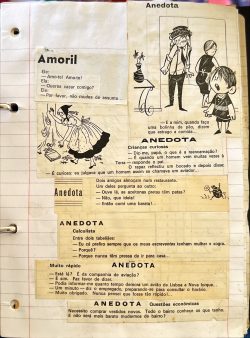 Anedota
Amoril
Ele:
— Amo-te! Amo-te!
Ela:
— Queres casar comigo?
Ele:
— Por favor, não mudes de assunto...
— E a mim, quando faço
uma bolinha de pão, dizem
que estrago a comida...
ANEDOTA
Crianças curiosas
— Diz-me, papá, o que é a reencarnação?
— É quando um homem vem muitas vezes à
Terra — responde o pai.
O rapaz reflectiu um bocado e depois disse:
— É curioso; eu julgava que um homem assim se chamava um aviador...
Anedota
Dois amigos almoçam num restaurante.
Um deles pergunta ao outro:
— Ouve lá, as azeitonas pretas têm patas?
— Não, que ideia!
— Então comi uma barata!
ANEDOTA
Calculista
Entre dois tabeliães:
— Eu cá prefiro sempre que os meus escreventes tenham mulher e sogra.
— Porquê?
— Porque nunca têm pressa de ir para casa...
Muito rápido
ANEDOTA
— Está lá? É da companhia de aviação?
— É sim. Faz favor de dizer.
— Podia informar-me quanto tempo demora um avião de Lisboa a Nova Iorque...
— Um minuto — diz o empregado, preparando-se para consultar o horário.
— Muito obrigado. Nunca pensei que fosse tão rápido!...
ANEDOTA
Questões económicas
Necessito comprar vestidos novos. Todo o bairro conhece os que tenho.
— E não seria mais barato mudarmos de bairro?